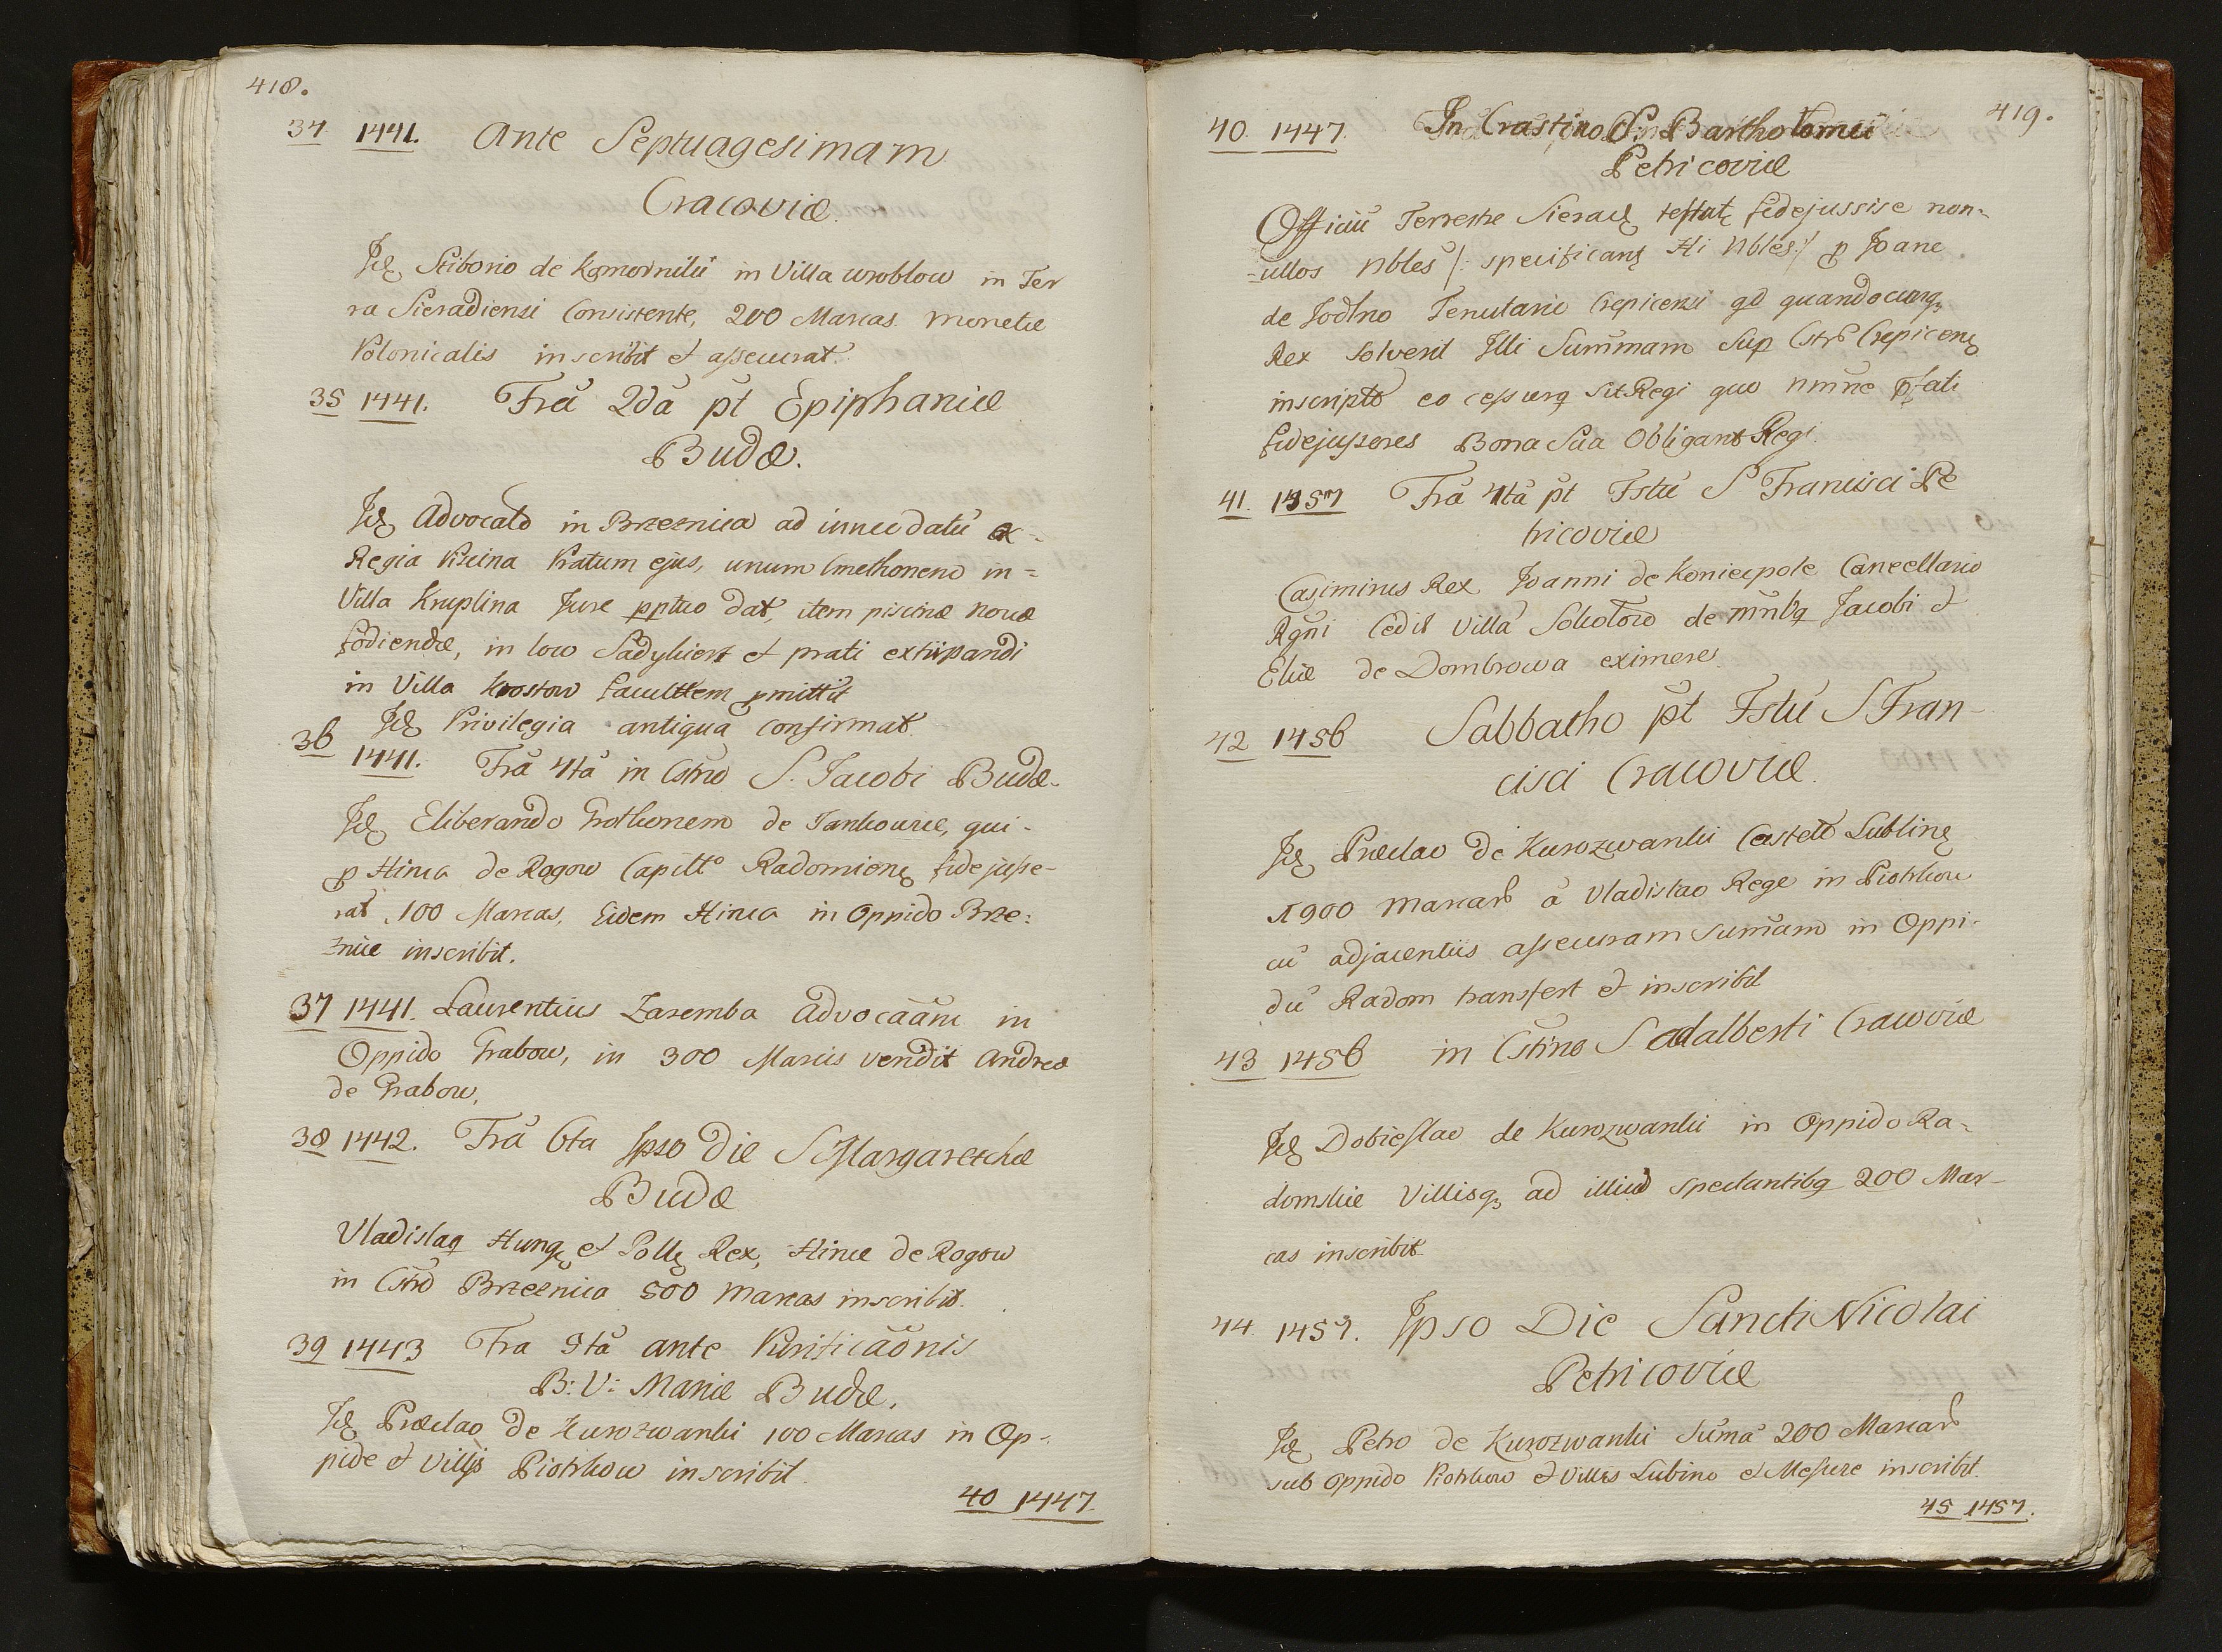 418.
34. 1441. Ante Septuagesimam
Cracoviæ.
Id. Sciborio de Komorniki in Villa wroblow in Ter
ra Sieradiensi Consistente, 200 Marcas Monetæ
Polonicalis inscribit et assecurat.
35 1441. Fra 2da pt Epiphaniæ
Budæ.
Id. Advocato in Brzeznica ad
Regia Piscina Pratum ejus, unum Cmethonem in=
Villa Kruplina Jure pptuo dat, item piscinæ novæ
fodiendæ, in loco et prati extirpandi
in Villa facultem pmittit
Id. Privilegia antiqua confirmat.
36 1441. Fra 4ta in Cstno S. Jacobi Budæ.
Id. Eliberando Grothonem de Jankowice, qui-
p Hinca de Rogow Capitto Radomien fidejusse-
rat 100 Marcas, Eidem Hinca in Oppido Brze:
znice inscribit.
37 1441. Laurentius Zaremba Advocaam in
Oppido Grabow, in 300 Marcis vendit Andreæ
de Grabow.
38 1442. Fra 6ta Ipso Die S Margarethæ
Budæ
Vladislaq Hung et Poll Rex, Hincæ de Rogow
in Cstro Brzeznica 500 Marcas inscribit.
39 1443 Fra 5ta ante Purificaonis
B: V: Mariæ Budæ.
Id. Præclao de Kurozwanki 100 Marcas in Op-
pido et Villis Piotrkow inscribit.
40 1447.
419.
40. 1447. In Crastino S: Bartholomæi
Petricoviæ
Officiu Terrestre Sierad testat fidejussise non=
=ullos Nbles /: specificant Hi Nbles:/ p Joane
de Jodlno Tenutario Crepicensi qd quandocunq
Rex solverit Illi Summam Sup Cstro Crepicen
inscripto eo Regi quo nmne pfati
fidejussores Bona Sua Obligant Regi.
41. 1457 Fra 4ta pt Fstu S. Francisci Pe
tricoviæ
Casimirus Rex Joanni de Koniecpole Cancellario
Rgni Cedit Villa Sokolow de mnbq Jacobi et
Eliæ de Dombrowa eximere.
42 1456 Sabbatho pt Fstu S Fran-
cisci Cracoviæ.
Id. Præclao de Kurozwanki Castell Lublin
1900 marcar à Vladislao Rege in Piotrkow
cu adjacentiis assecuram Sumam in Oppi-
du Radom transfert et inscribit
43 1456 in Cstino S Adalberti Cracoviæ
Id. Dobieslao de Kurozwanki in Oppido Ra=
domskie Villisq ad illud spectantibq 200 Mar-
cas inscribit.
44. 1457. Ipso Die Sancti Nicolai
Petricoviæ
Id. Petro de Kurozwanki Suma 200 Marcar
sub oppido Piotrkow et Villis Lubino et inscribit.
45 1457.